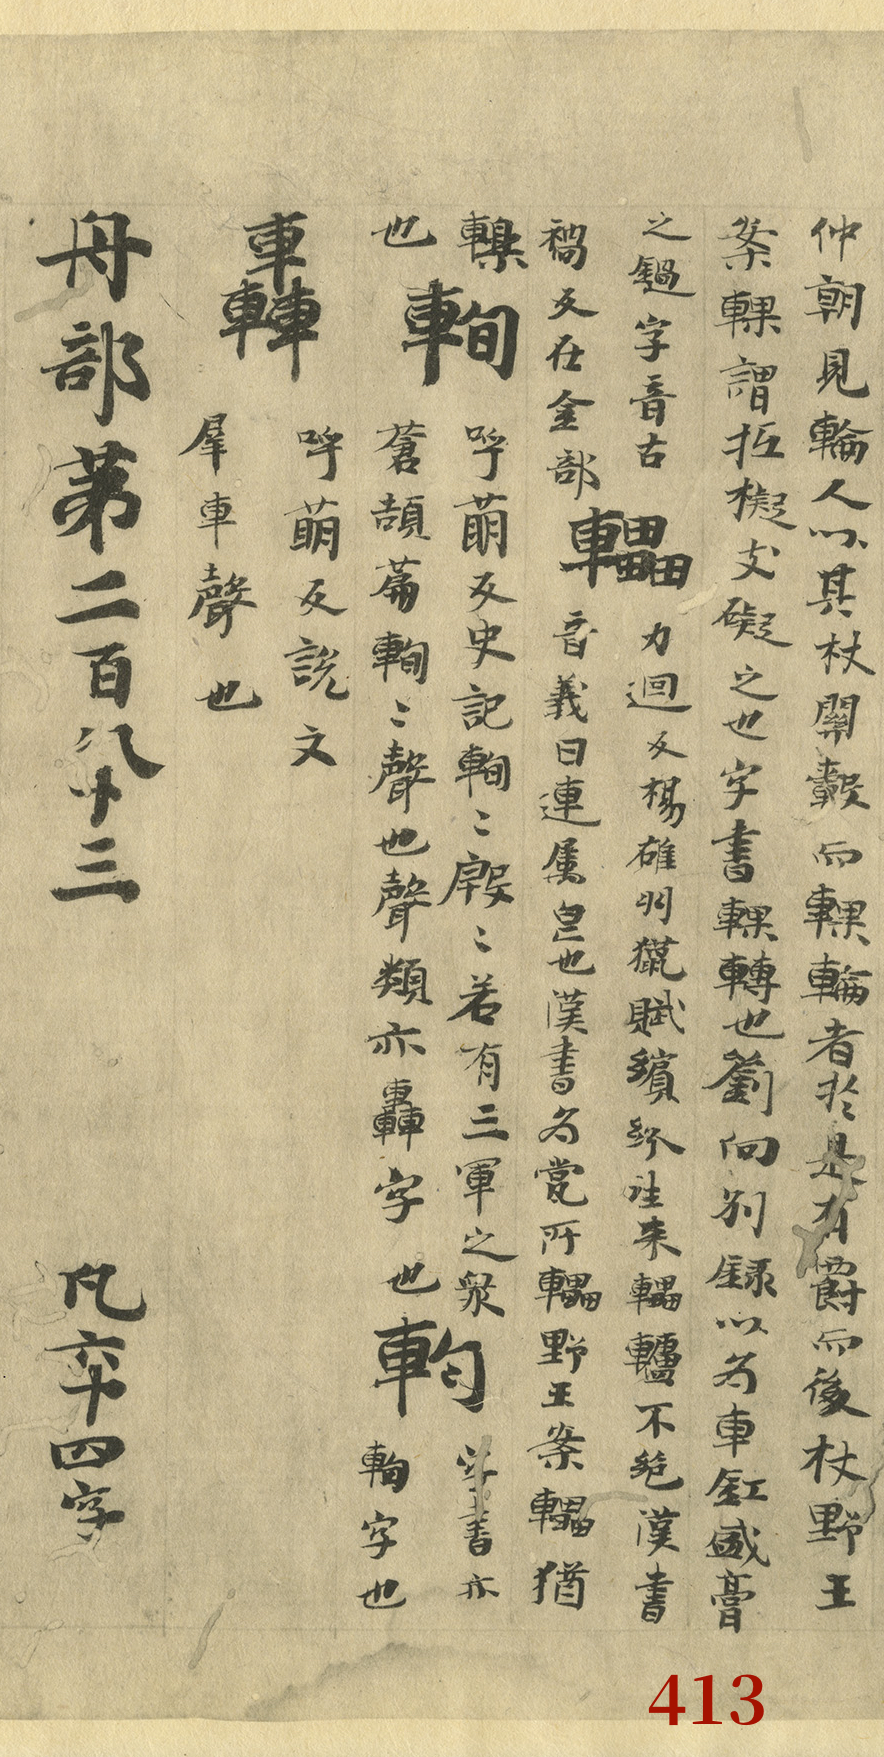 仲朝見輪人以其杖關轂而輠輪者於是有爵而後杖野王
案輠謂抂檥支礙之也字書輠轉也劉向別録以爲車釭盛膏
之鍋字音古
禍反在金部
轠
力迴反楊雄羽獵賦繽紛往来轠轤不絶漢書
音義曰連属皃也漢書爲甇所轠野王案轠猶
轈
也
輷
呼萌反史記輷〻殷〻若有三軍之衆
蒼頡篇輷〻聲也聲類亦轟字也
䡍
字書亦
輷字也
轟
呼萌反説文
羣車聲也
舟部第二百八十三
凡六十四字
413